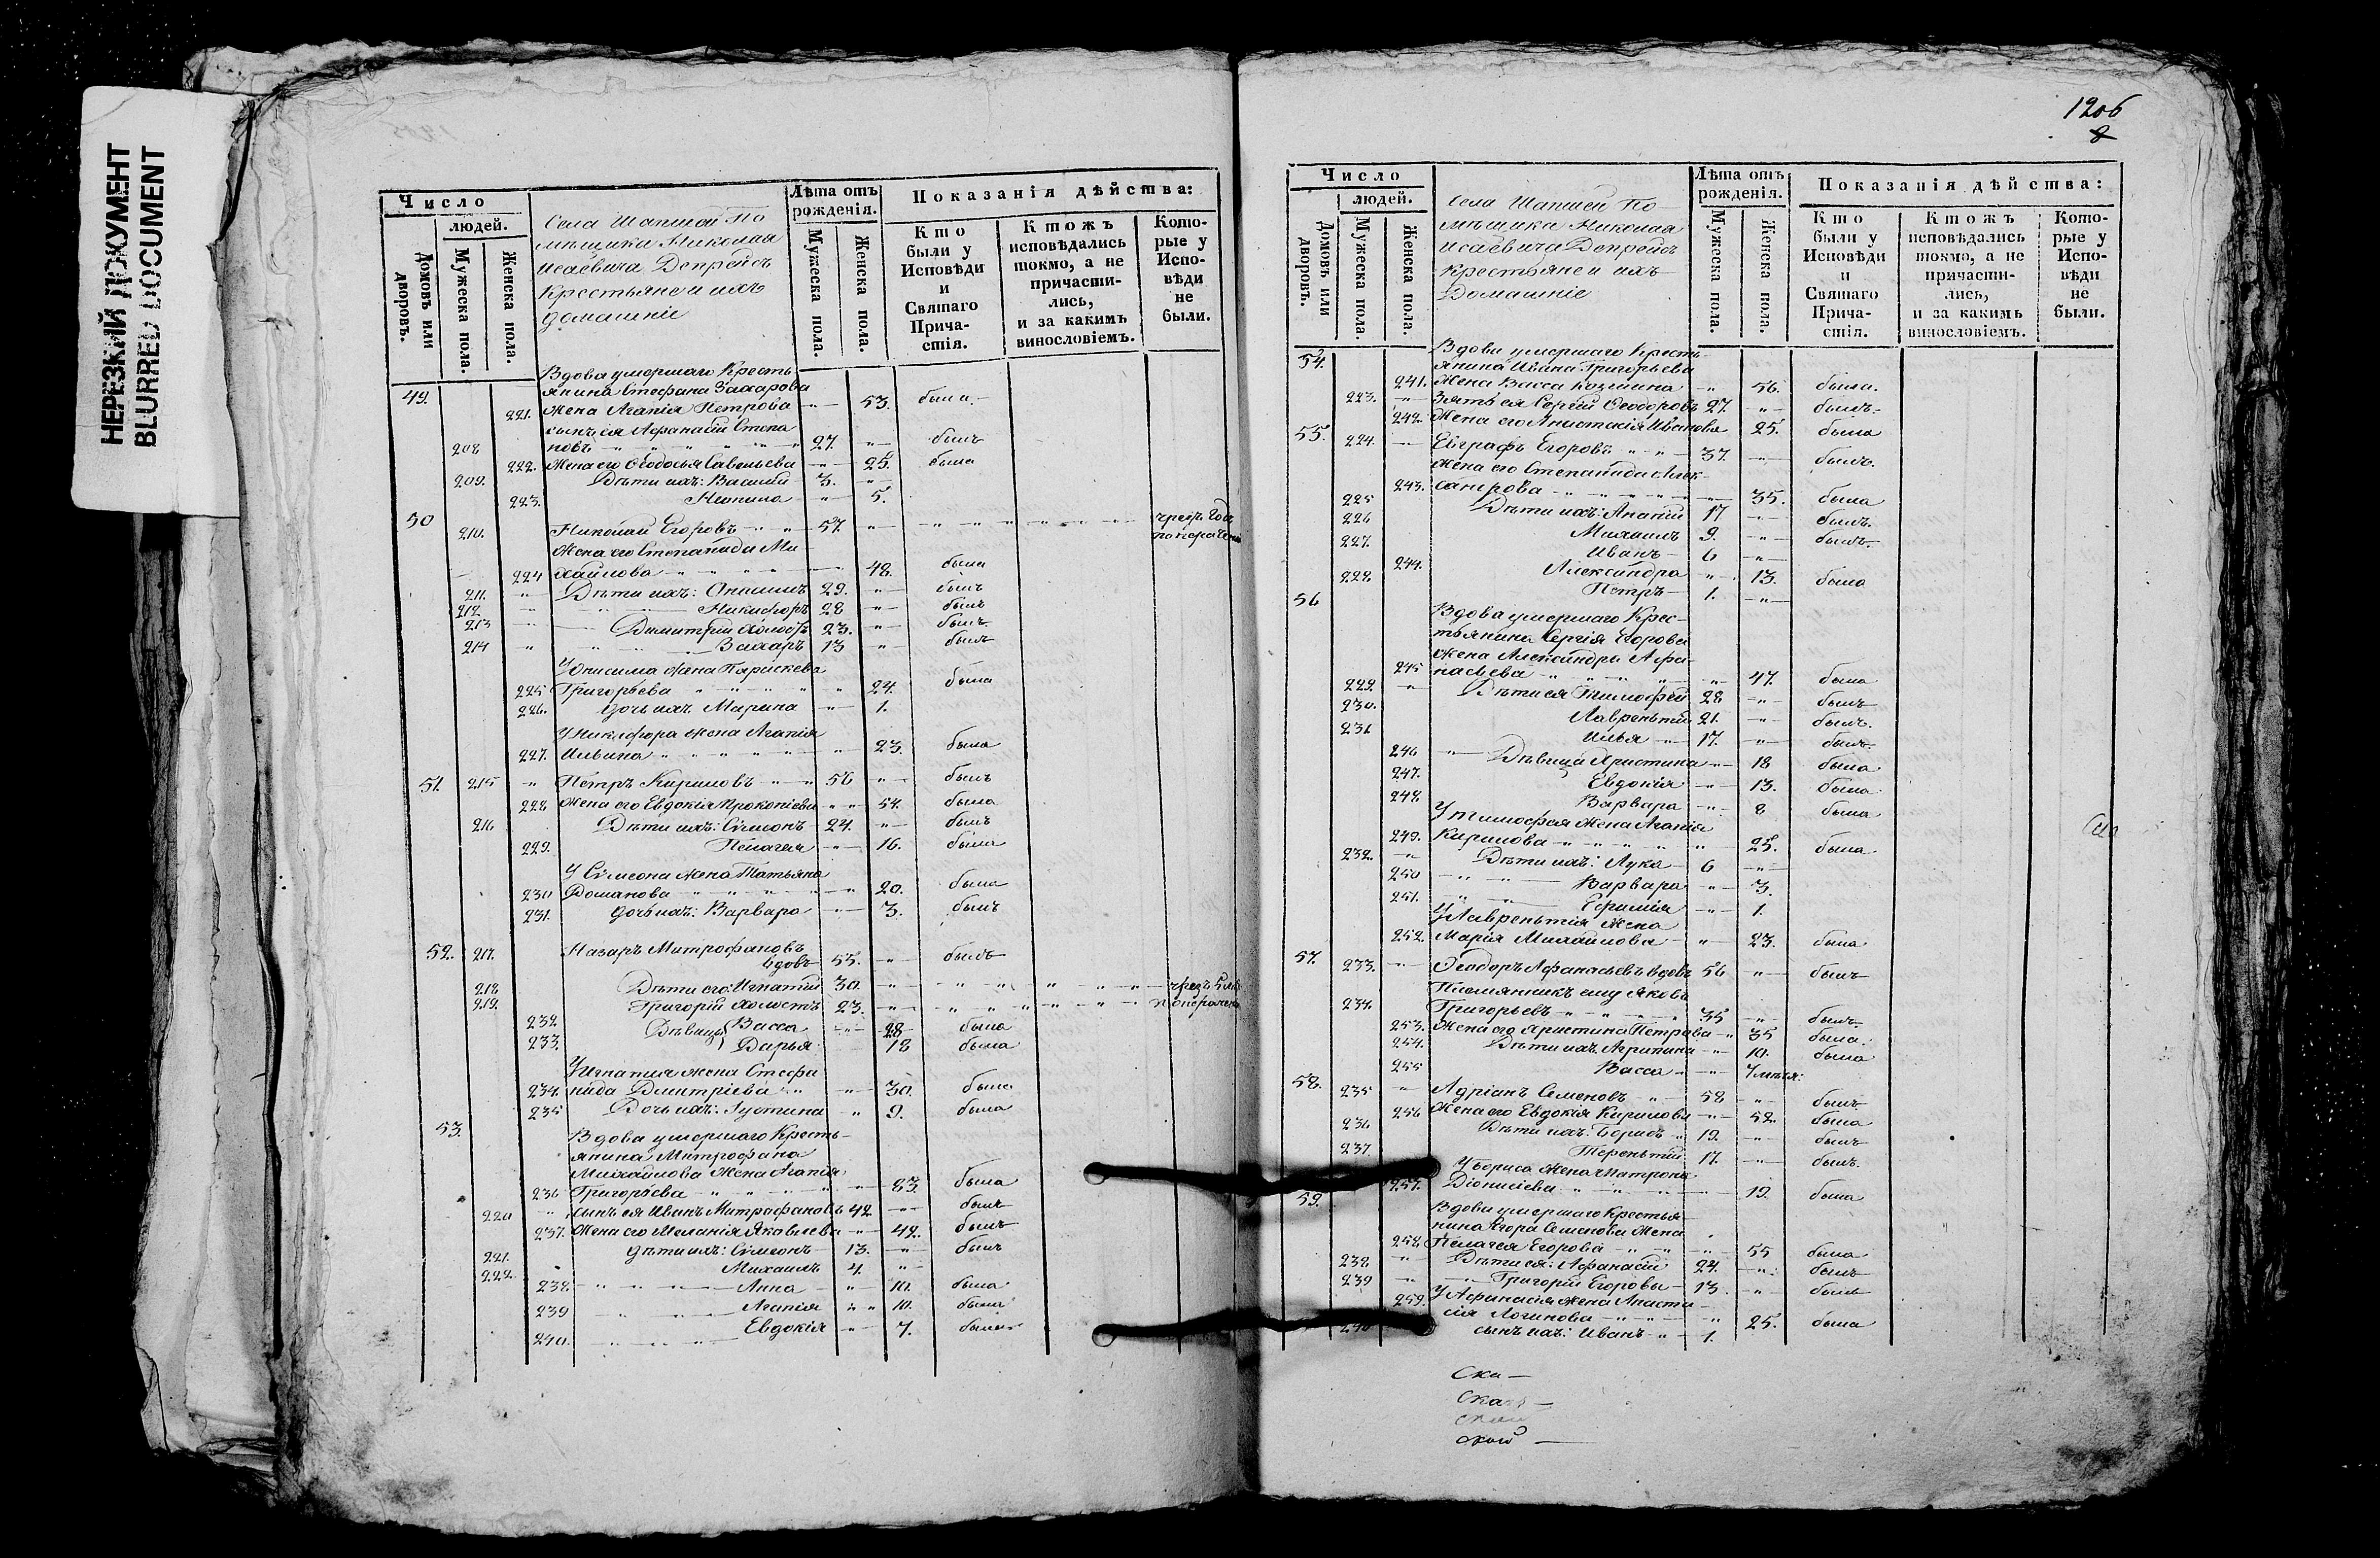 НЕРЕЗКИЙ ДОКУМЕНТ
BLURRED DOCUMENT
Число
людей.
Домовъ или дворовъ.
Мужеска пола.
Женска пола.
Села Шапшей По
мѣщика Николая
Исаевича Депрейсъ
Крестьяне и ихъ
домашніе
Лѣта отъ рожденія.
Мужеска пола.
Женска пола.
Показанія дѣйства:
Кто были у Исповѣди и Святаго Причастія.
Ктожъ исповѣдались токмо, а не причастились, и за какимъ винословіемъ.
Которые у Исповѣди не были.
49. Вдова умершаго Кресть
янина Стефана Захарова
221. жена Агапія Петрова 53. была
сынъ ея Афанасій Степа
208 новъ 27. былъ
222. Жена его Ѳеодосья Савельева 25. была
209. Дѣти ихъ: Василий 3.
223. 5.
50 210. Николай Егоровъ 57. чрезъ
Жена его Степанида Ми
224 хайлова 48. была
211. Дѣти ихъ: Онисимъ 29. былъ
212. Никифоръ 28 былъ
213 Димитрій холостъ 23. былъ
214 Захаръ 13 былъ
У Онисима жена Параскева
225 Григорьева 24. была
226. дочь ихъ Марина 1.
У Никифора жена Агапія
227. Ильина 23. была
51. 215 Петръ Кириловъ 56 былъ
228 Жена его Евдокія Прокопіева 54. была
216 Дѣти ихъ: Сѵмеонъ 24. былъ
229. Пелагея 16. была
У Сѵмеона жена Татьяна
230 Романова 20. была
231. дочь ихъ: Варвара 3. былъ
52. 217. Назаръ Митрофановъ
вдовъ 55. былъ
218 Дѣти его: Игнатій 30. чрезъ
219. Григорій холостъ 23.
232 Дѣвицы Васса 28 была
233. Дарья 18 была
У Игнатія жена Стефа
234. нида Дмитріева 30. была
235 Дочь ихъ: Іустина 9. была
53. Вдова умершаго Кресть-
янина Митрофана
Михайлова Жена Агапія
236 Григорьева 83. была
220 сынъ ея Иванъ Митрофановъ 42 былъ
237. Жена его Меланія Яковлева 42. былъ
221. дѣти ихъ: Сѵмеонъ 13. былъ
222. Михаилъ 4.
238 Анна 10. была
239 Агапія 10. была
240. Евдокія 7. была
1206
8
Число
людей.
Домовъ или дворовъ.
Мужеска пола.
Женска пола.
Села Шапшей По-
мѣщика Николая
Исаевича Депрейсъ
крестьяне и ихъ
Домашніе
Лѣта отъ рожденія.
Мужеска пола.
Женска пола.
Показанія дѣйства:
Кто были у Исповѣди и Святаго Причастія.
Ктожъ исповѣдались токмо, а не причастились, и за какимъ винословіемъ.
Которые у Исповѣди не были.
54. Вдова умершаго Кресть-
янина Ивана Григорьева
241. Жена Васса Козмина 56. была.
223. Зять ея Сергій Ѳеодоровъ 27. былъ
242. Жена его Анастасія Иванова 25. была
55. 224. Евграфъ Егоровъ 37. былъ.
Жена его Степанида Алек-
243. сандрова 35. была
225 Дѣти ихъ: Ананій 17 былъ.
226 Михаилъ 9. былъ.
227. Иванъ 6
244. Александра 13. была
228 Петръ 1.
56 Вдова умершаго Крес-
тьянина Сергія Егорова
Жена Александра Афа-
245 насьева 47. была
229. Дѣти ея Тимофей 28 былъ
230. Лаврентій 21. былъ.
231 Илья 17. былъ.
246 Дѣвица Христина 18 была
247. Евдокія 13. была.
248 Варвара 8 была
У Тимофея Жена Агапія
249. Карпова 25. была.
232. Дѣти ихъ: Лука 6
250 Варвара 3.
251. 1.
У Лаврентія Жена
252. Марія Михайлова 23. была
57. 233. Ѳеодоръ Афанасьевъ вдовъ 56 былъ
Племянникъ ему Яковъ
234. Григорьевъ 35 былъ.
253. Жена его Христина Петрова 35 была.
254. Дѣти ихъ Агрипина 10. была
255 Васса
58. 235 Адріанъ Семеновъ 58 былъ
256 Жена его Евдокія Кирилова 52. была
236 Дѣти ихъ: Борисъ 19. былъ
237. Терентій 17. былъ.
У Бориса Жена Матрона
257. Діонисіева 19. была
59. Вдова умершаго Крестья-
нина Егора Семенова Жена
258. Пелагея Егорова 55 была
238 Дѣти ея: Афанасій 24. былъ
239 Григорій Егоровы 13 былъ
259. У Афанасія жена Анаста-
сія Логинова 25. была
240 сынъ ихъ: Иванъ 1.
Ска —
Ска
ской —